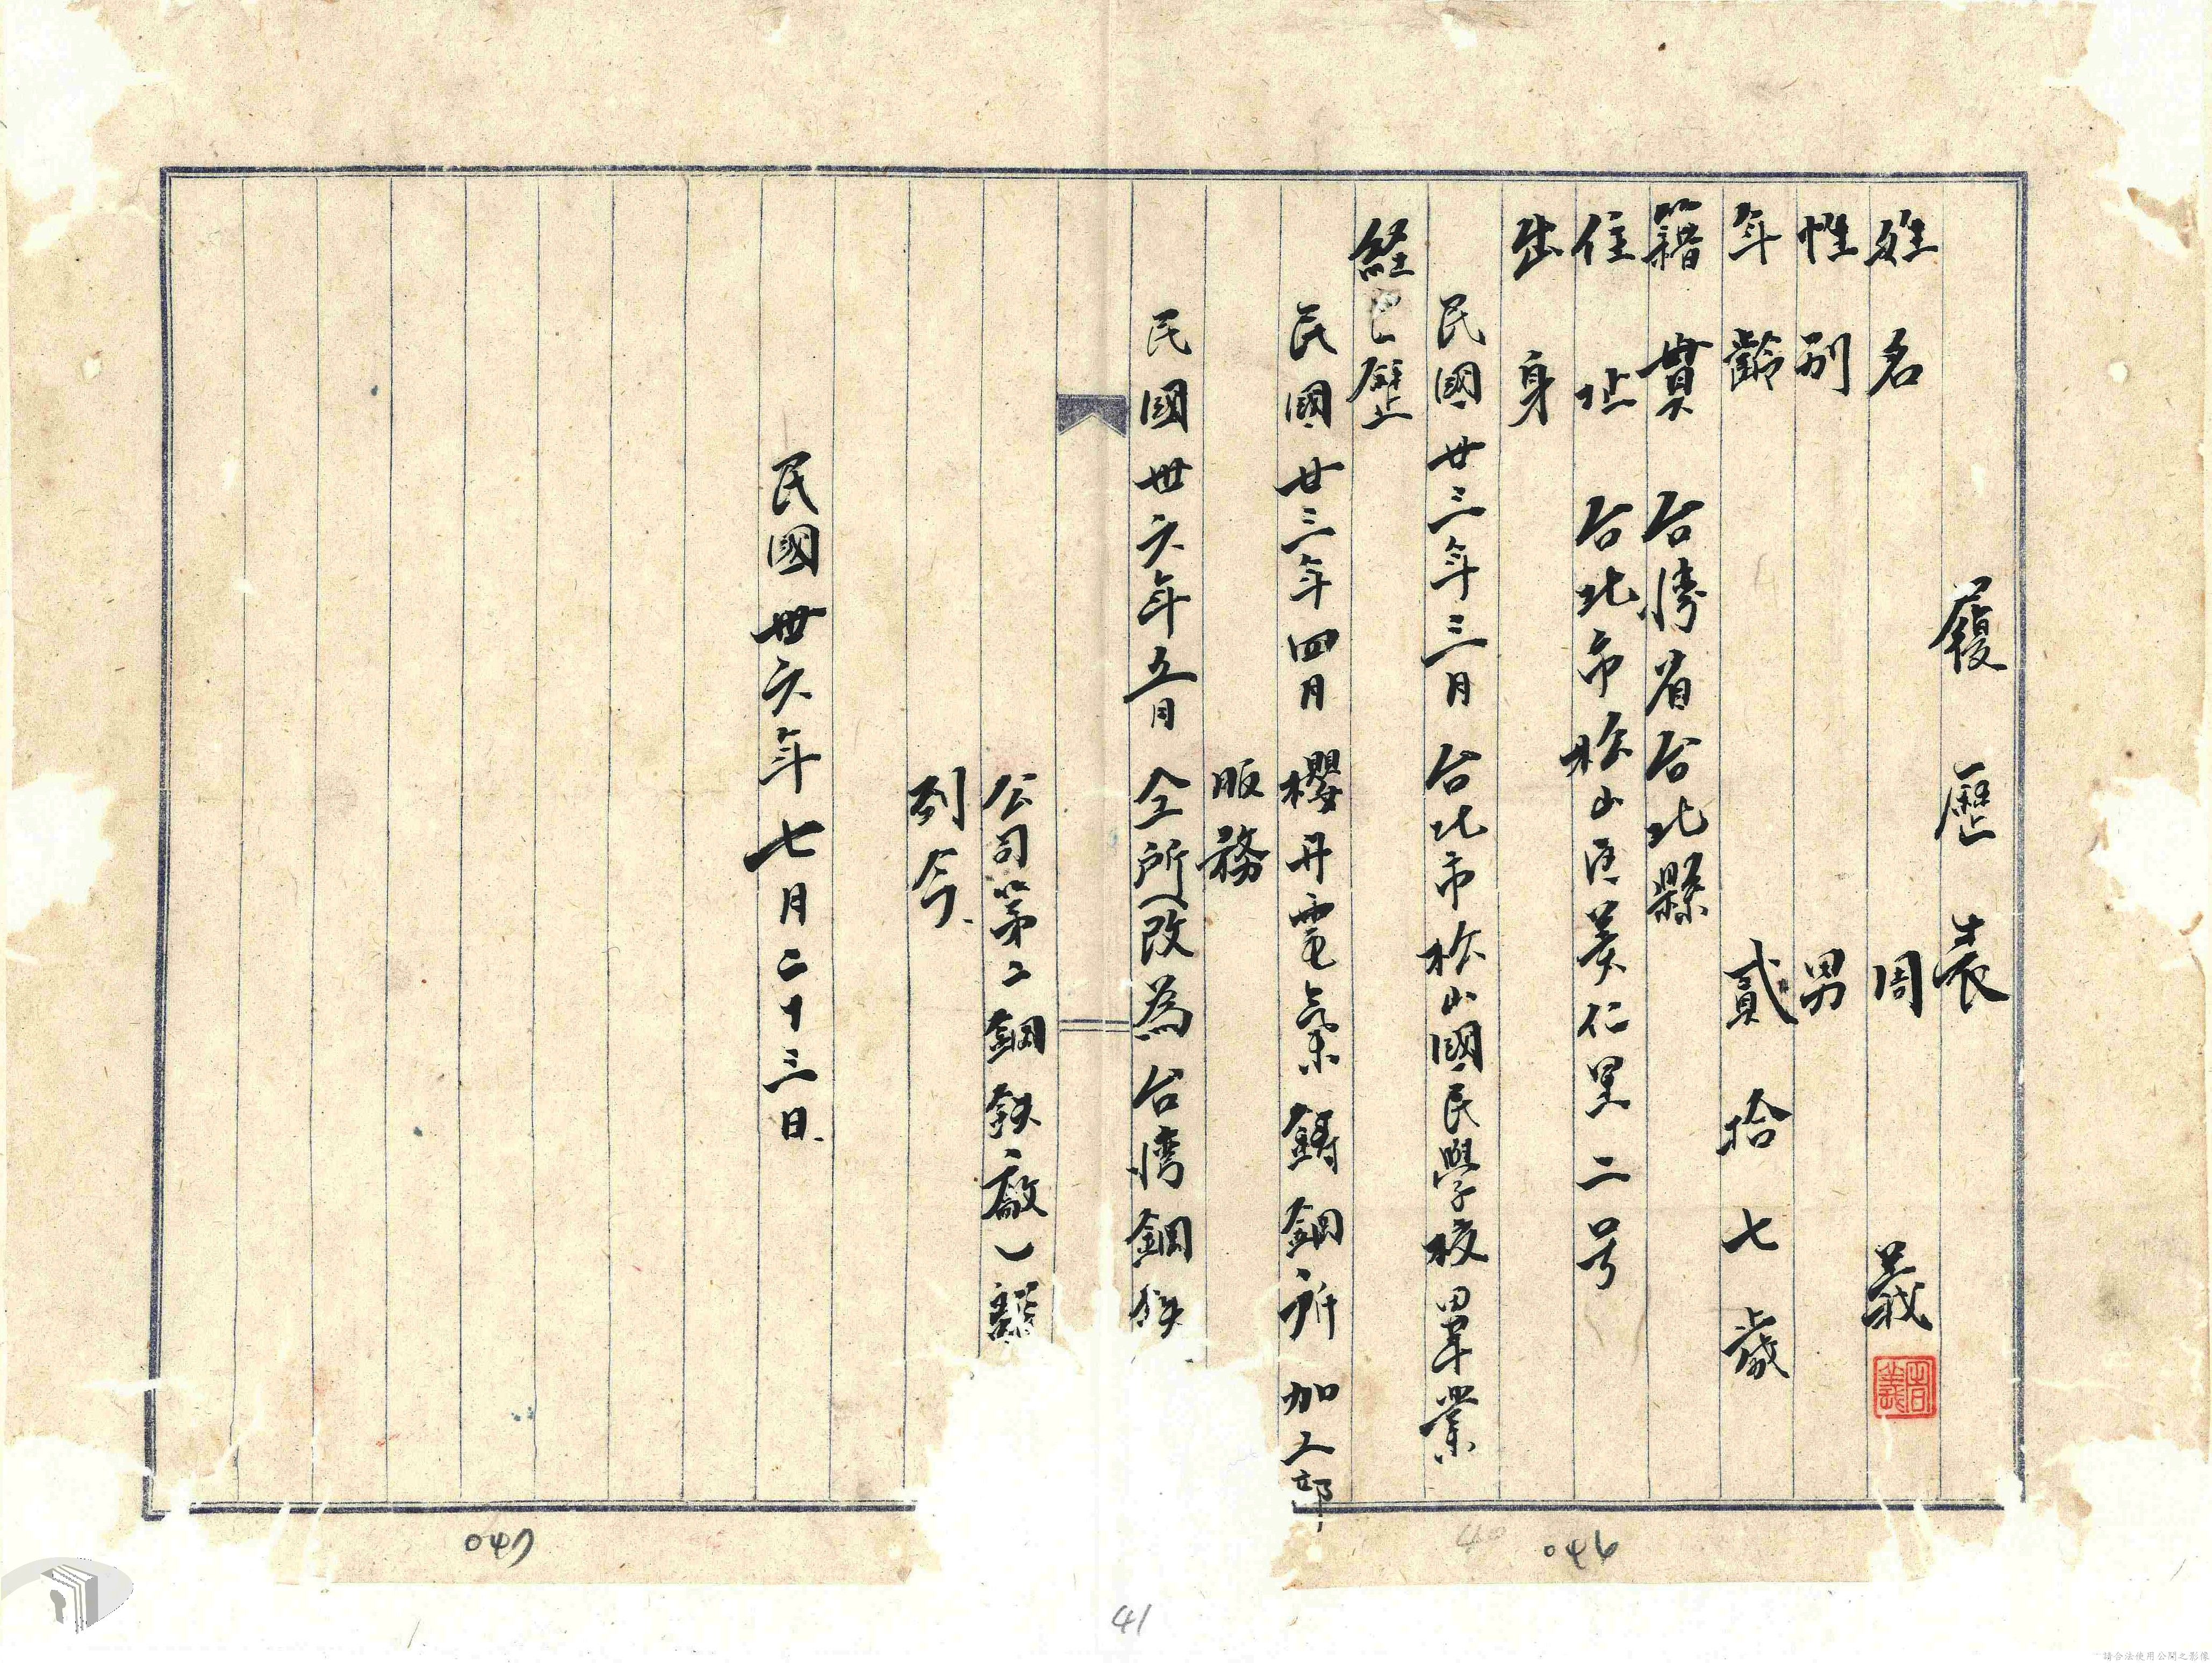 履歷表
姓名 周義
性別 男
年齡 貳拾七歲
籍貫 台湾省台北縣
住址 台北市松山区美仁里二号
出身
民國廿三年三月 台北市松山國民學校畢業
経歷
民國廿三年四月 櫻井電気鋳鋼所加工部
服務
民國卅六年五月 仝所(改為台湾鋼鉄
公司第二鋼鉄廠)
到今.
民國卅六年七月二十三日.
周義
046
047
40
41
請合法使用公開之影像